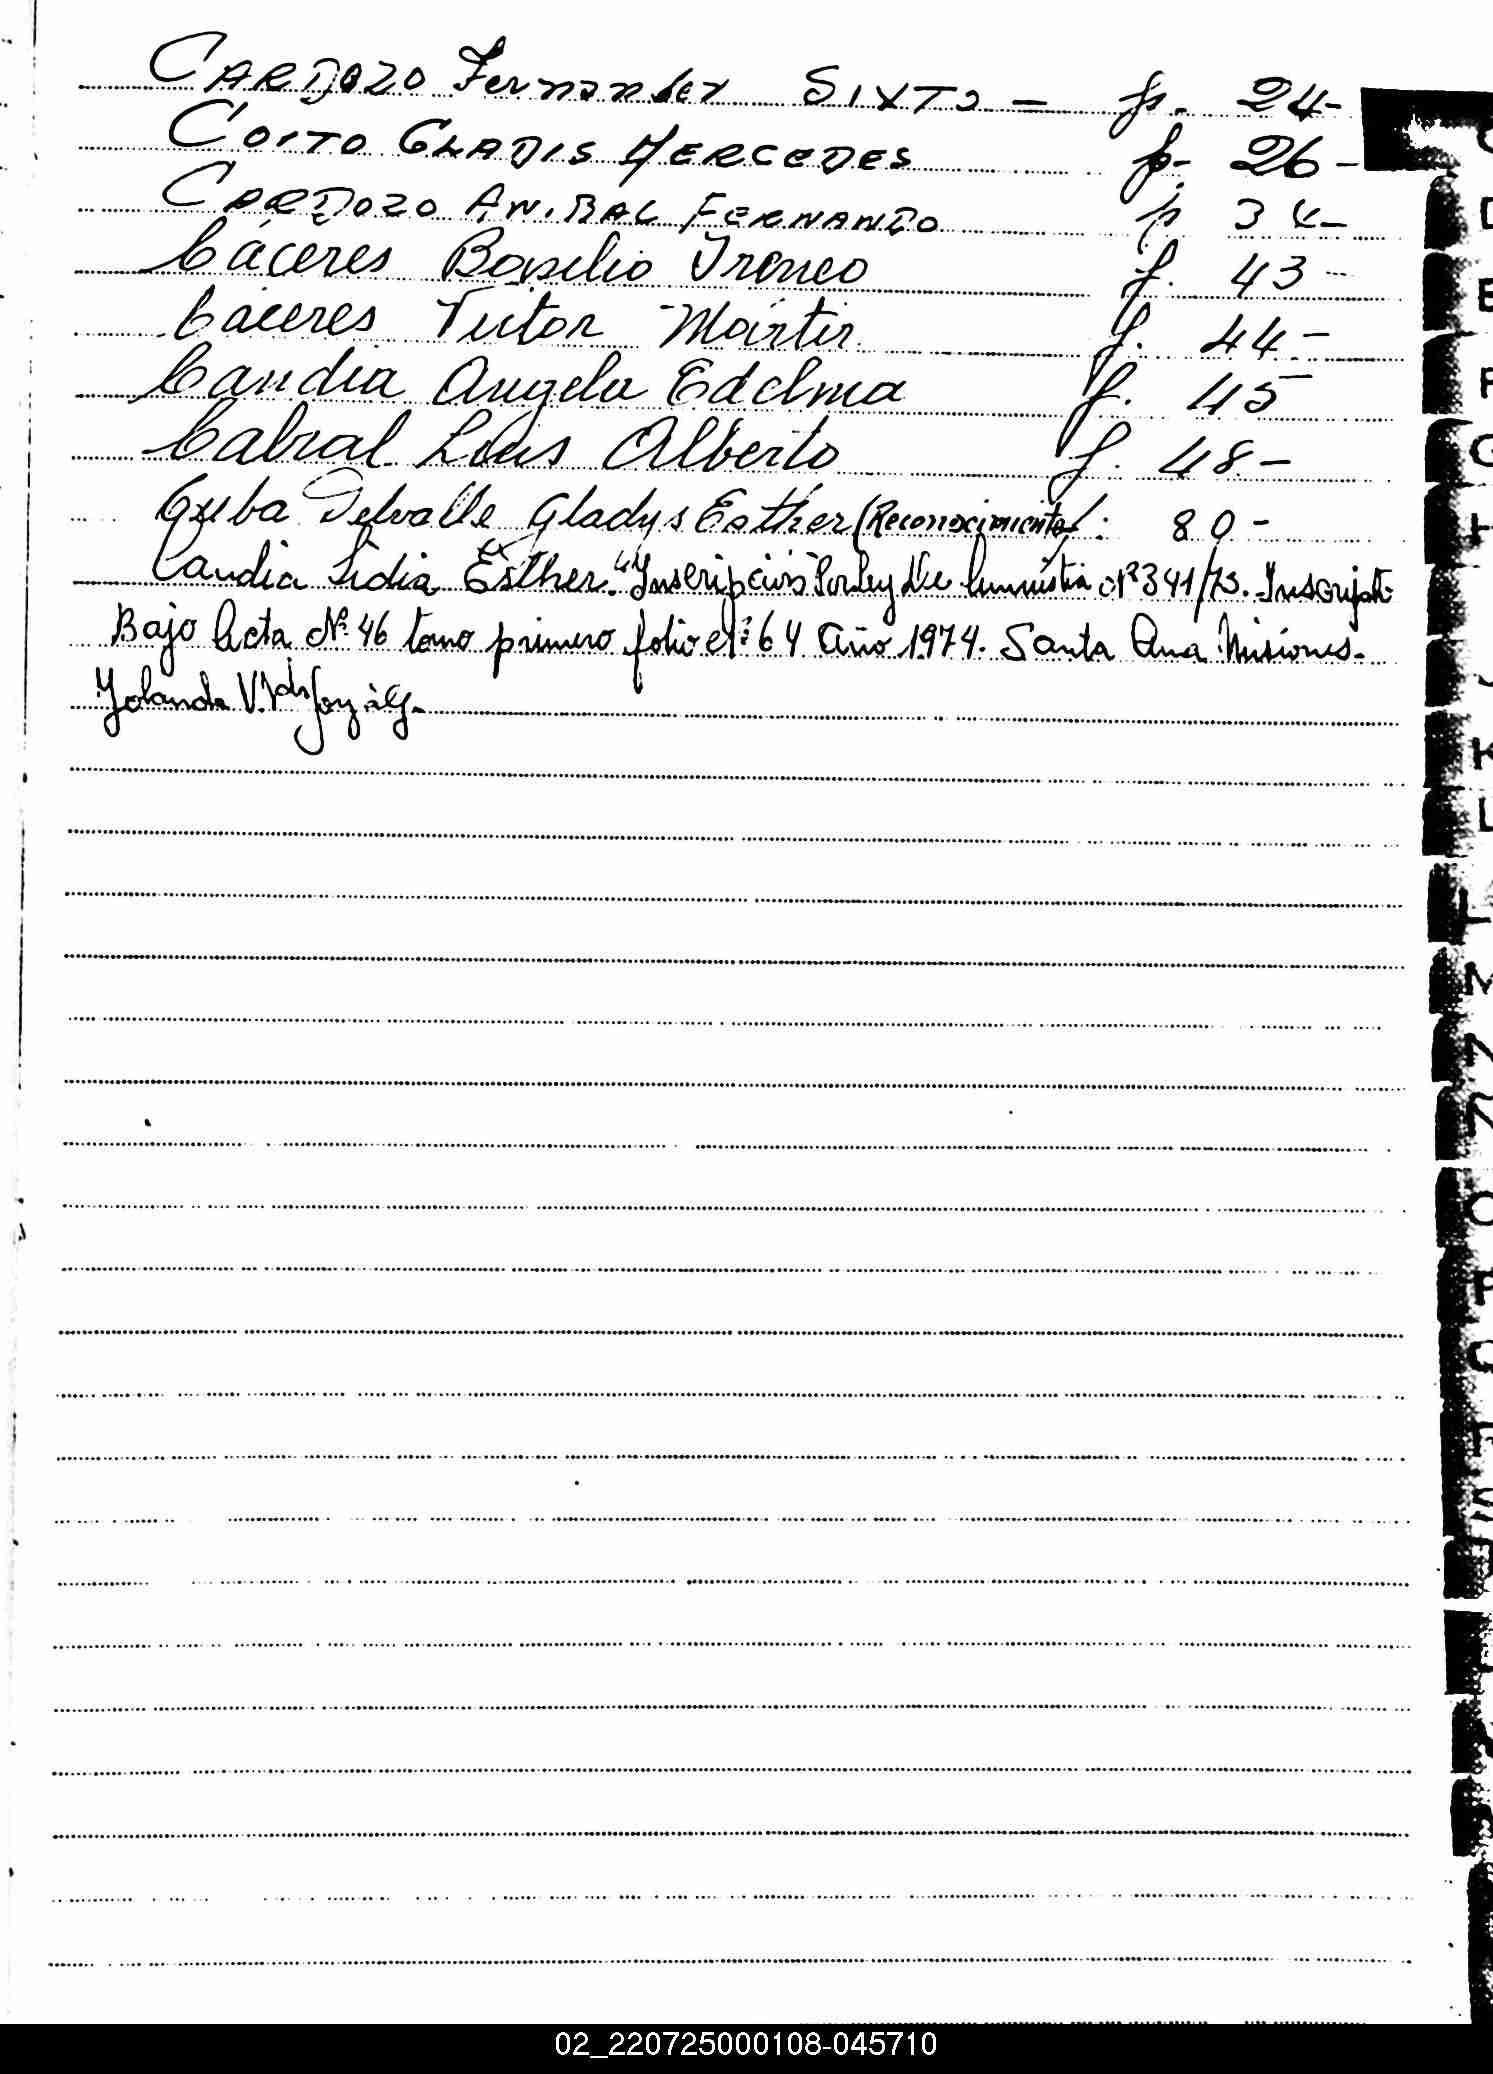 CARDOZO Fernandez SIXTO - f. 24-
COITO GLADIS MERCEDES f- 26-
CARDOZO ANIBAL FERNANDO f. 34-
Cáceres Basilio Ireneo f. 43-
Cáceres Victor Mártir f. 44-
Candia Angela Edelma f. 45-
Cabral Luis Alberto f. 48-
Cuba Delvalle Gladys Esther (Reconocimiento): 80-
Candia Lidia Esther. "Inscripción Por Ley De Amnistia Nº 341/73. Inscripto
Bajo Acta Nº 46 tomo primero folio 64 Año 1974. Santa Ana Misiones.
Yolanda V. de
D
E
F
G
H
J
K
L
M
N
Ñ
O
P
Q
S
02_220725000108-045710